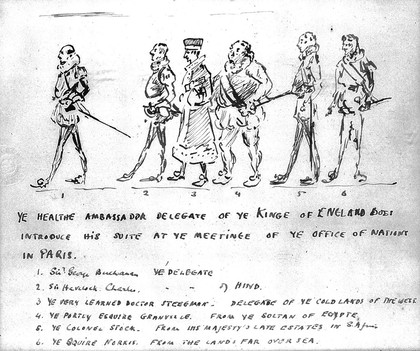 1 2 3 4 5 6
YE HEALTHE AMBASSADOR DELEGATE OF YE KINGE OF ENGLAND DOES
INTRODUCE HIS SUITE AT YE MEETINGE OF YE OFFICE OF NATIONS
IN PARIS.
1. Sir George Buchanan YE DELEGATE
2. Sir Havelock Charles. " " of HIND.
3 YE VERY LEARNED DOCTOR STEEGMAN. DELEGATE OF YE COLD LANDS OF THE WEST
4. YE PORTLY ESQUIRE GRANVILLE. FROM YE SOLTAN OF EGYPTE.
5. YE COLONEL STOCK. FROM HIS MAJESTY'S LATE ESTATES IN S. Africa
6. YE SQUIRE NORRIS. FROM THE LANDS FAR OVER SEA.